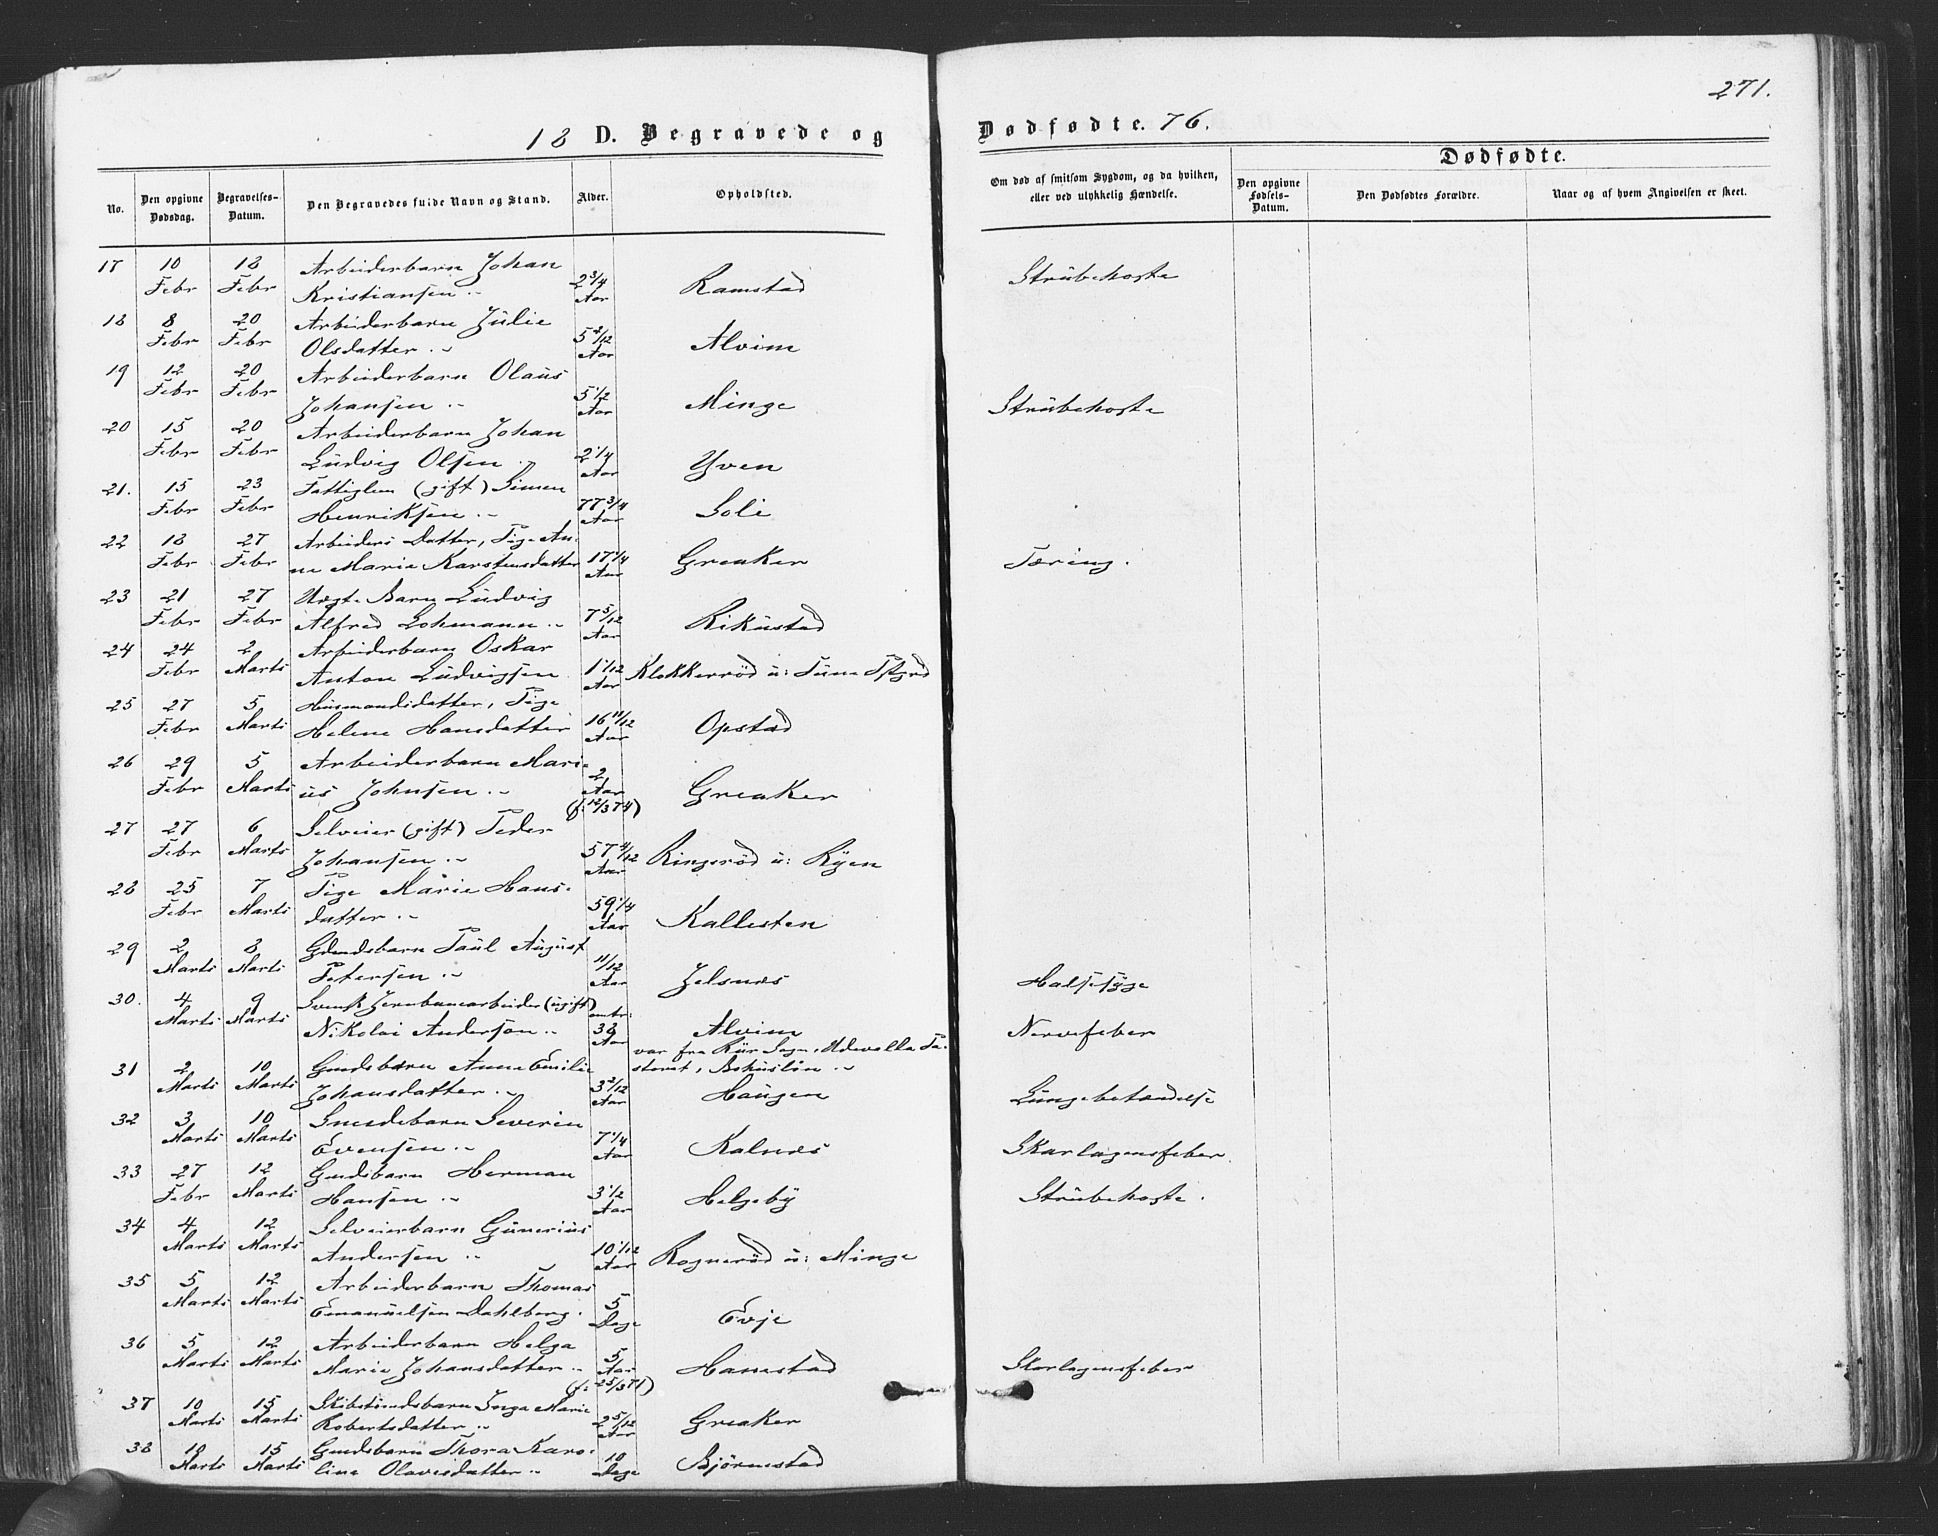 271.
18 D. Begravede og Dødfødte. 76.
Dødfødte.
No.
Den opgivne Dødsdag.
Begravelses-Datum.
Den Begravedes fulde Navn og Stand.
Alder.
Opholdsted.
Om død af smitsom Sygdom, og da hvilken, eller ved ulykkelig Hændelse.
Den opgivne Fødsels-Datum.
Den Dødfødtes Forældre.
Naar og af hvem Angivelsen er skeet.
17 10 18 Arbeiderbarn Johan
Febr Febr Kristiansen 2 3/4 Aar Ramstad Strübehoste
18 8 20 Arbeiderbarn Jülie
Febr Febr Olsdatter 5 2/12 Aar Alvim
19 12 20 Arbeiderbarn Olaüs
Febr Febr Johansen 5 1/2 Aar Minge Strübehoste
20 15 20 Arbeiderbarn Johan
Febr Febr Lüdvig Olsen 2 1/4 Aar Yven
21. 15 23 Fattiglem (gift) Simen
Febr Febr Henriksen 77 3/4 Aar Soli
22 18 27 Arbeiders Datter, Pige An-
Febr Febr ne Marie Karstensdatter 17 1/4 Aar Greaker Tæring.
23 21 27 Uægte Barn Lüdvig
Febr Febr Alfred Lohmann 7 5/12 Aar Riküstad
24 24 2 Arbeiderbarn Oskar
Febr Marts Anton Lüdvigsen 1 1/12 Aar Klokkerröd ü: Tüne Pstgrd
25 27 5 Hüsmandsdatter, Pige
Febr Marts Helene Hansdatter 16 11/12 Aar Opstad
26 29 5 Arbeiderbarn Mari-
Febr Marts üs Johnsen 2 Aar (f. 12/3 74) Greaker
27 27 6 Selveier (gift) Peder
Febr Marts Johansen 57 4/12 Aar Ringeröd ü: Ryen
28 25 7 Pige Marie Hans-
Febr Marts datter 59 1/4 Aar Kallesten
29 2 8 Gmdsbarn Paül Aügüst
Marts Marts Petersen 11/12 Aar Jelsnæs Halssyge
30. 4 9 Svensk Jernbanearbeider (ügift) omtr:
Marts Marts Nikolai Anderson 38 Aar Alvim Nervefeber
var fra Kür Sogn, Udevalla Pa-
storat, Bohüslün
31 2 10 Gmdsbarn Anne Emilie
Marts Marts Johansdatter 3 2/12 Aar Haügen Lüngebetændelse
32 3 10 Smedebarn Severin
Marts Marts Evensen 7 1/4 Aar Kalnæs Skarlagensfeber
33 27 12 Gmdsbarn Herman
Febr Marts Hansen 3 1/2 Aar Helgeby Strübehoste.
34 4 12 Selveierbarn Günerius
Marts Marts Andersen 10 1/12 Aar Rogneröd ü: Minge
35 5 12 Arbeiderbarn Thomas
Marts Marts Emanüelsen Dahlberg. 5 Dage Evje
36 5 12 Arbeiderbarn Helga
Marts Marts Marie Johansdatter 5 Aar (f. 25/3 71) Hamstad Skarlagensfeber
37 10 15 Inga Marie
Marts Marts Robertsdatter 2 5/12 Aar Greaker
38 10 15 Gmdsbarn Thora Karo-
Marts Marts line Olavesdatter 10 Dage Björnestad